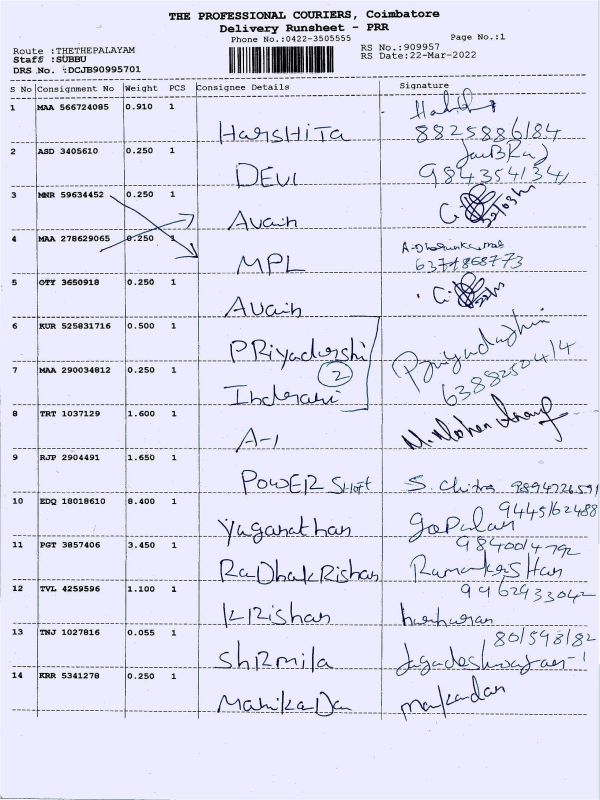 THE PROFESSIONAL COURIERS, Coimbatore
Delivery Runsheet - PRR
Phone No.:0422-3505555
Page No.:1
Route :THETHEPALAYAM
RS No.:909957
Staff :SUBBU
RS Date:22-Mar-2022
DRS No. :DCJB90995701
S No Consignment No Weight PCS Consignee Details Signature
1 MAA 566724085 0.910 1
HARSHITA 8825886184
2 ASD 3405610 0.250 1
DEVI
3 MNR 59634452 0.250 1
Avain
4 MAA 278629065 0.250 1
MPL
5 OTY 3650918 0.250 1
Avain
6 KUR 525831716 0.500 1
PRiyadarshi Priyadarshini
7 MAA 290034812 0.250 1
2
Inderani
8 TRT 1037129 1.600 1
A-1
9 RJP 2904491 1.650 1
POWER SHIFT S. Chitra 9894726591
10 EDQ 18018610 8.400 1
9445162488
Yaganathan Gopalan
11 PGT 3857406 3.450 1
9840014792
RaDhakRishan
12 TVL 4259596 1.100 1
9962933042
KRishan hariharan
13 TNJ 1027816 0.055 1
ShRmila
14 KRR 5341278 0.250 1
ManikaDan manikandan